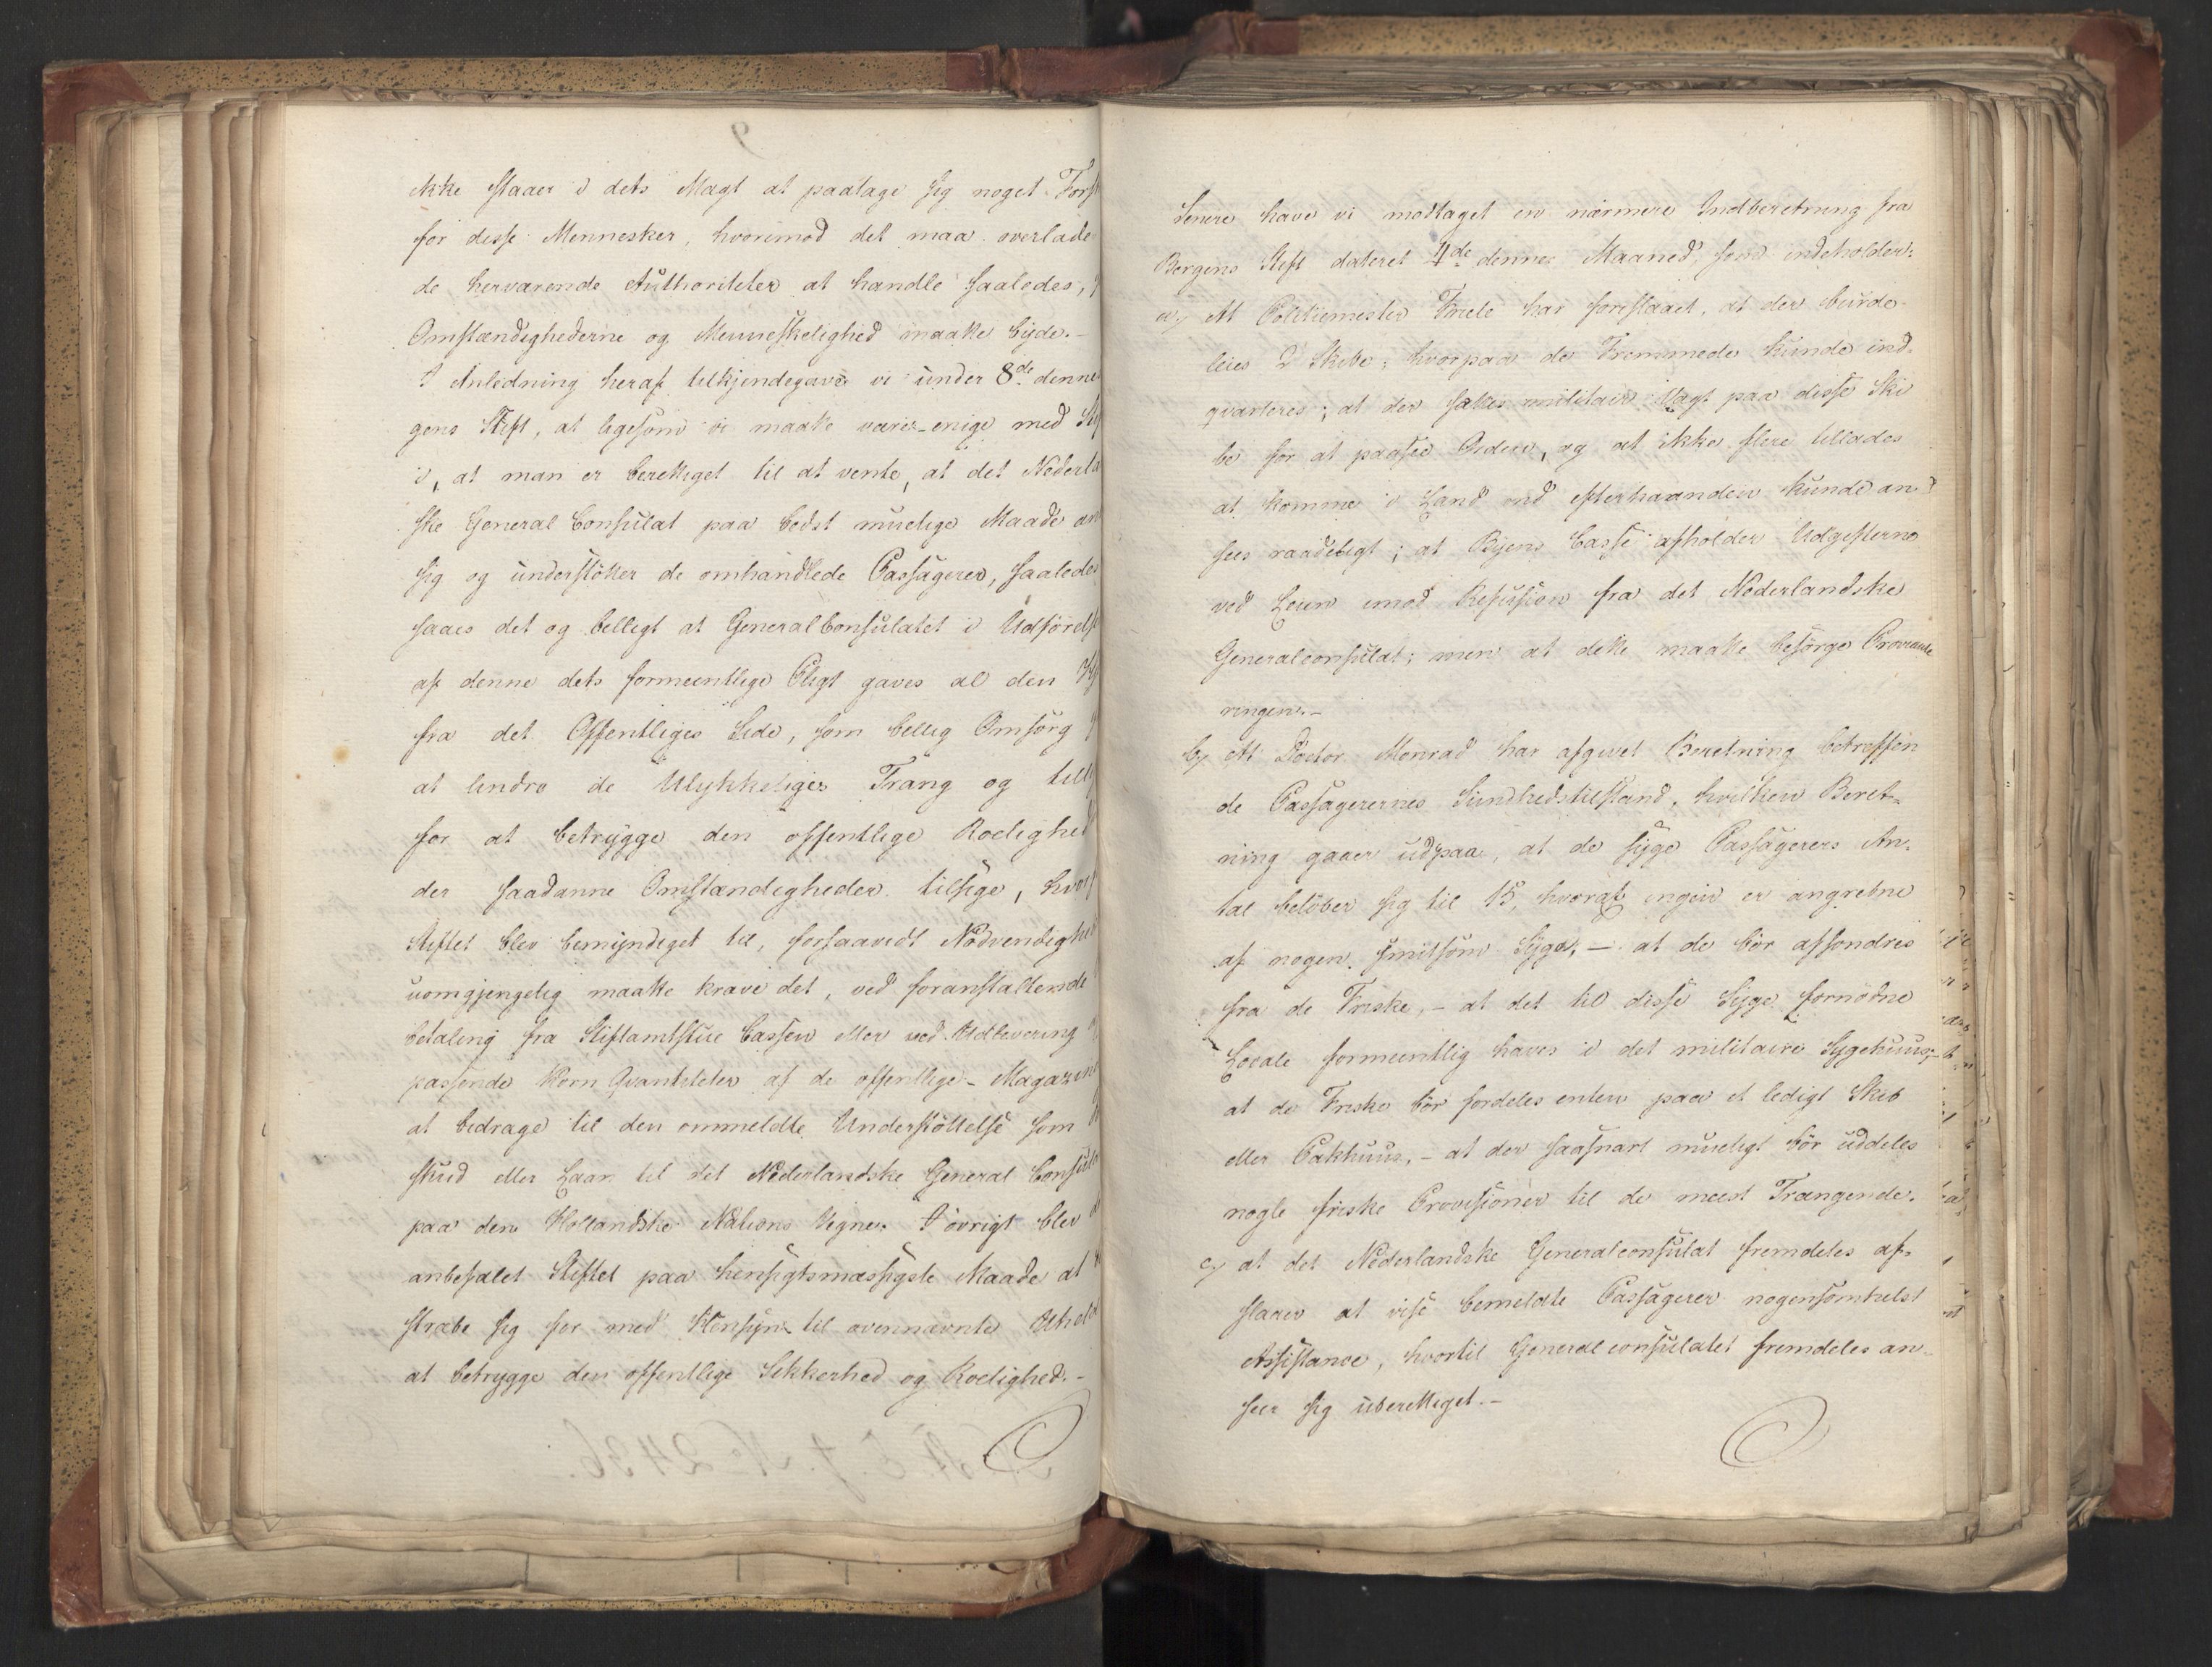 ikke staaer i dets Magt at paatage sig noget Forst
for disse Mennesker, hvorimod det maa overlade
de herværende Authoriteter at handle saaledes,
Omstændighederne og Menneskelighed maatte byde.-
I Anledning heraf tilkjendegave vi under 8de denne
gens Stift, at ligesom vi maatte være enige med Sti
i, at man er berettiget til at vente, at det Nederla
ske General Consulat paa bedst muelige Maade an
sig og understötter de omhandlede Passagerer, saaledes
saaes det og billigt at GeneralConsulatet i Udförelse
af denne dets formeentlige Pligt gaves al den
fra det Offentliges Side, som billig Omsorg
at lindre de Ulykkeliges Trang og till
for at betrygge den offentlige Roelighed
der saadanne Omstændigheder tilsige, hvor
Stiftet blev bemyndiget til, forsaavidt Nödvendighe
uomgjengelig maatte kræve det, ved foranstaltende
betaling fra Stiftamtstue Cassen eller ved Udlevering
passende Korn Qvantiteter af de offentlige Magazin
at bidrage til den ommeldte Understöttelse som
skud eller Laan til det Nederlandske General Consula
paa den Hollandske Nations Vegne. I övrigt blev
anbefalet Stiftet paa hensigtsmæssigste Maade at
stræbe sig for med Hensyn til ovennævnte
at betrygge den offentlige Sikkerhed og Roelighed.-
Senere have vi modtaget en nærmere Indberetning fra
Bergens Stift dateret 4de dennes Maaned, som indeholder:
a, At Politiemester Friele har foreslaaet, at der burde
leies 2 Skibe, hvorpaa de Fremmede kunde ind-
qvarteres; at der sættes militair Vagt paa disse Ski
be for at paasee Orden, og at ikke flere tillades
at komme i Land end efterhaanden kunde an
sees raadeligt; at Byens Casse afholder Udgifterne
ved Leien imod Refusion fra det Nederlandske
Generalconsulat; men at dette maatte besörge Proviante
ringen.-
b, At Doctor Monrad har afgivet Beretning betreffen
de Passagerernes Sundhedstilstand, hvilken Beret-
ning gaaer ud paa, at de syge Passagerers An-
tal belöber sig til 15, hvoraf ingen er angrebne
af nogen smitsom Syge, - at de bör afsondres
fra de Friske, - at det til disse Syge fornödne
Locale formeentlig haves i det militaire Sygehuus,-
at de Friske bör fordeles enten paa et ledigt Skib
eller Pakhuus, - at der saasnart mueligt bör uddeles
nogle friske Provisioner til de meest Trængende.
c, at det Nederlandske Generalconsulat fremdeles af-
slaaer at vise bemeldte Passagerer nogensomhelst
Assistance, hvortil Generalconsulatet fremdeles an-
seer sig uberettiget.-